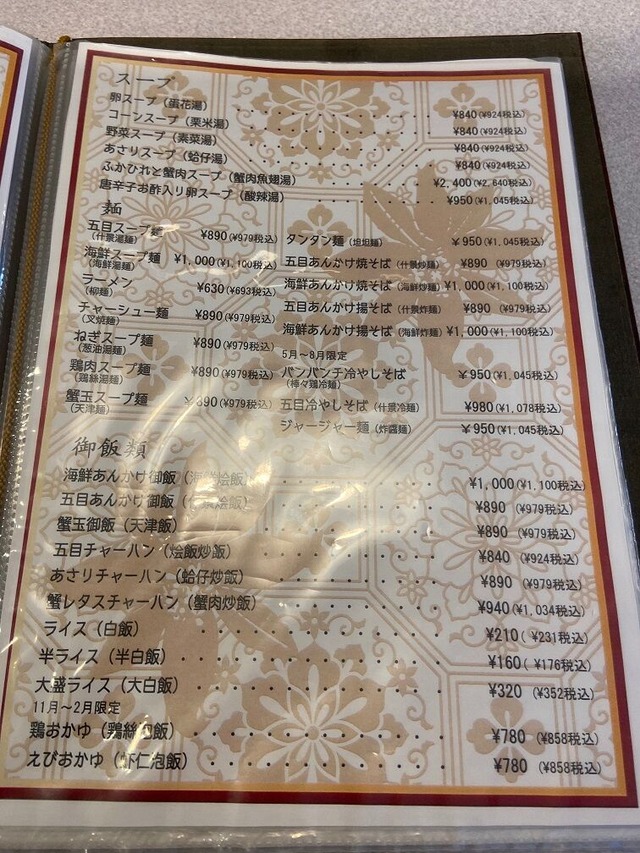 スープ
卵スープ（蛋花湯） ¥840(¥924税込)
コーンスープ（栗米湯） ¥840(¥924税込)
野菜スープ（素菜湯） ¥840(¥924税込)
あさりスープ（蛤仔湯） ¥840(¥924税込)
ふかひれと蟹肉スープ（蟹肉魚翅湯） ¥2,400(¥2,640税込)
唐辛子お酢入り卵スープ（酸辣湯） ¥950(¥1,045税込)
麺
五目スープ麺 ¥890(¥979税込)
(什景湯麺)
海鮮スープ麺 ¥1,000(¥1,100税込)
(海鮮湯麺)
ラーメン ¥630(¥693税込)
(柳麺)
チャーシュー麺 ¥890(¥979税込)
(叉焼麺)
ねぎスープ麺 ¥890(¥979税込)
(葱油湯麺)
鶏肉スープ麺 ¥890(¥979税込)
(鶏絲湯麺)
蟹玉スープ麺 ¥890(¥979税込)
(天津麺)
タンタン麺（坦坦麺） ¥950(¥1,045税込)
五目あんかけ焼そば（什景炒麺） ¥890 (¥979税込)
海鮮あんかけ焼そば（海鮮炒麺） ¥1,000(¥1,100税込)
五目あんかけ揚そば（什景炸麺） ¥890 (¥979税込)
海鮮あんかけ揚そば（海鮮炸麺） ¥1,000(¥1,100税込)
5月～8月限定
バンバンチ冷やしそば ¥950(¥1,045税込)
(棒々鶏冷麺)
五目冷やしそば（什景冷麺） ¥980(¥1,078税込)
ジャージャー麺（炸醤麺） ¥950(¥1,045税込)
御飯類
海鮮あんかけ御飯（海鮮烩飯） ¥1,000(¥1,100税込)
五目あんかけ御飯（什景烩飯） ¥890 (¥979税込)
蟹玉御飯（天津飯） ¥890 (¥979税込)
五目チャーハン（烩飯炒飯） ¥840 (¥924税込)
あさりチャーハン（蛤仔炒飯） ¥890 (¥979税込)
蟹レタスチャーハン（蟹肉炒飯） ¥940(¥1,034税込)
ライス（白飯） ¥210( ¥231税込)
半ライス（半白飯） ¥160( ¥176税込)
大盛ライス（大白飯） ¥320 (¥352税込)
11月～2月限定
鶏おかゆ（鶏絲泡飯） ¥780 (¥858税込)
えびおかゆ（虾仁泡飯） ¥780 (¥858税込)